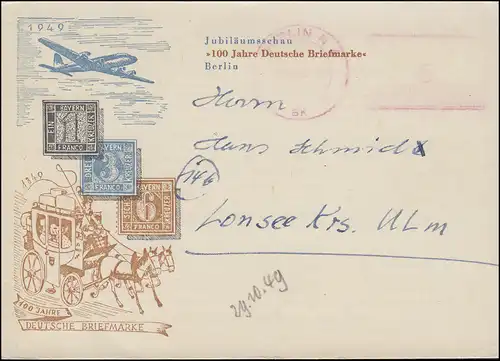 1949
Jubiläumsschau
»100 Jahre Deutsche Briefmarke«
Berlin
BAYERN
EIN 1 KREUZER
FRANCO
BAYERN
DREI 3 KREUZER
FRANCO
BAYERN
6
FRANCO
Herrn
Hans Schmid
14b
Lonsee Krs. Ulm
29.10.49
1849
100 JAHRE
DEUTSCHE BRIEFMARKE